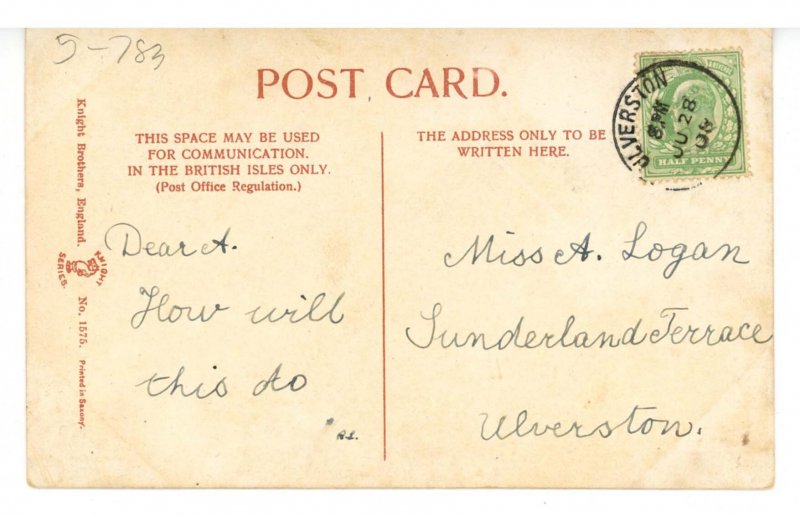 5-783
POST CARD.
THIS SPACE MAY BE USED
FOR COMMUNICATION.
IN THE BRITISH ISLES ONLY.
(Post Office Regulation.)
THE ADDRESS ONLY TO BE
WRITTEN HERE.
ULVERSTON
8 PM
JU 28
08
HALF PENNY
Knight Brothers, England.
KNIGHT
SERIES.
No. 1575.
Printed in Saxony.
Dear A.
How will
this do
Miss A. Logan
Sunderland Terrace
Ulverston.